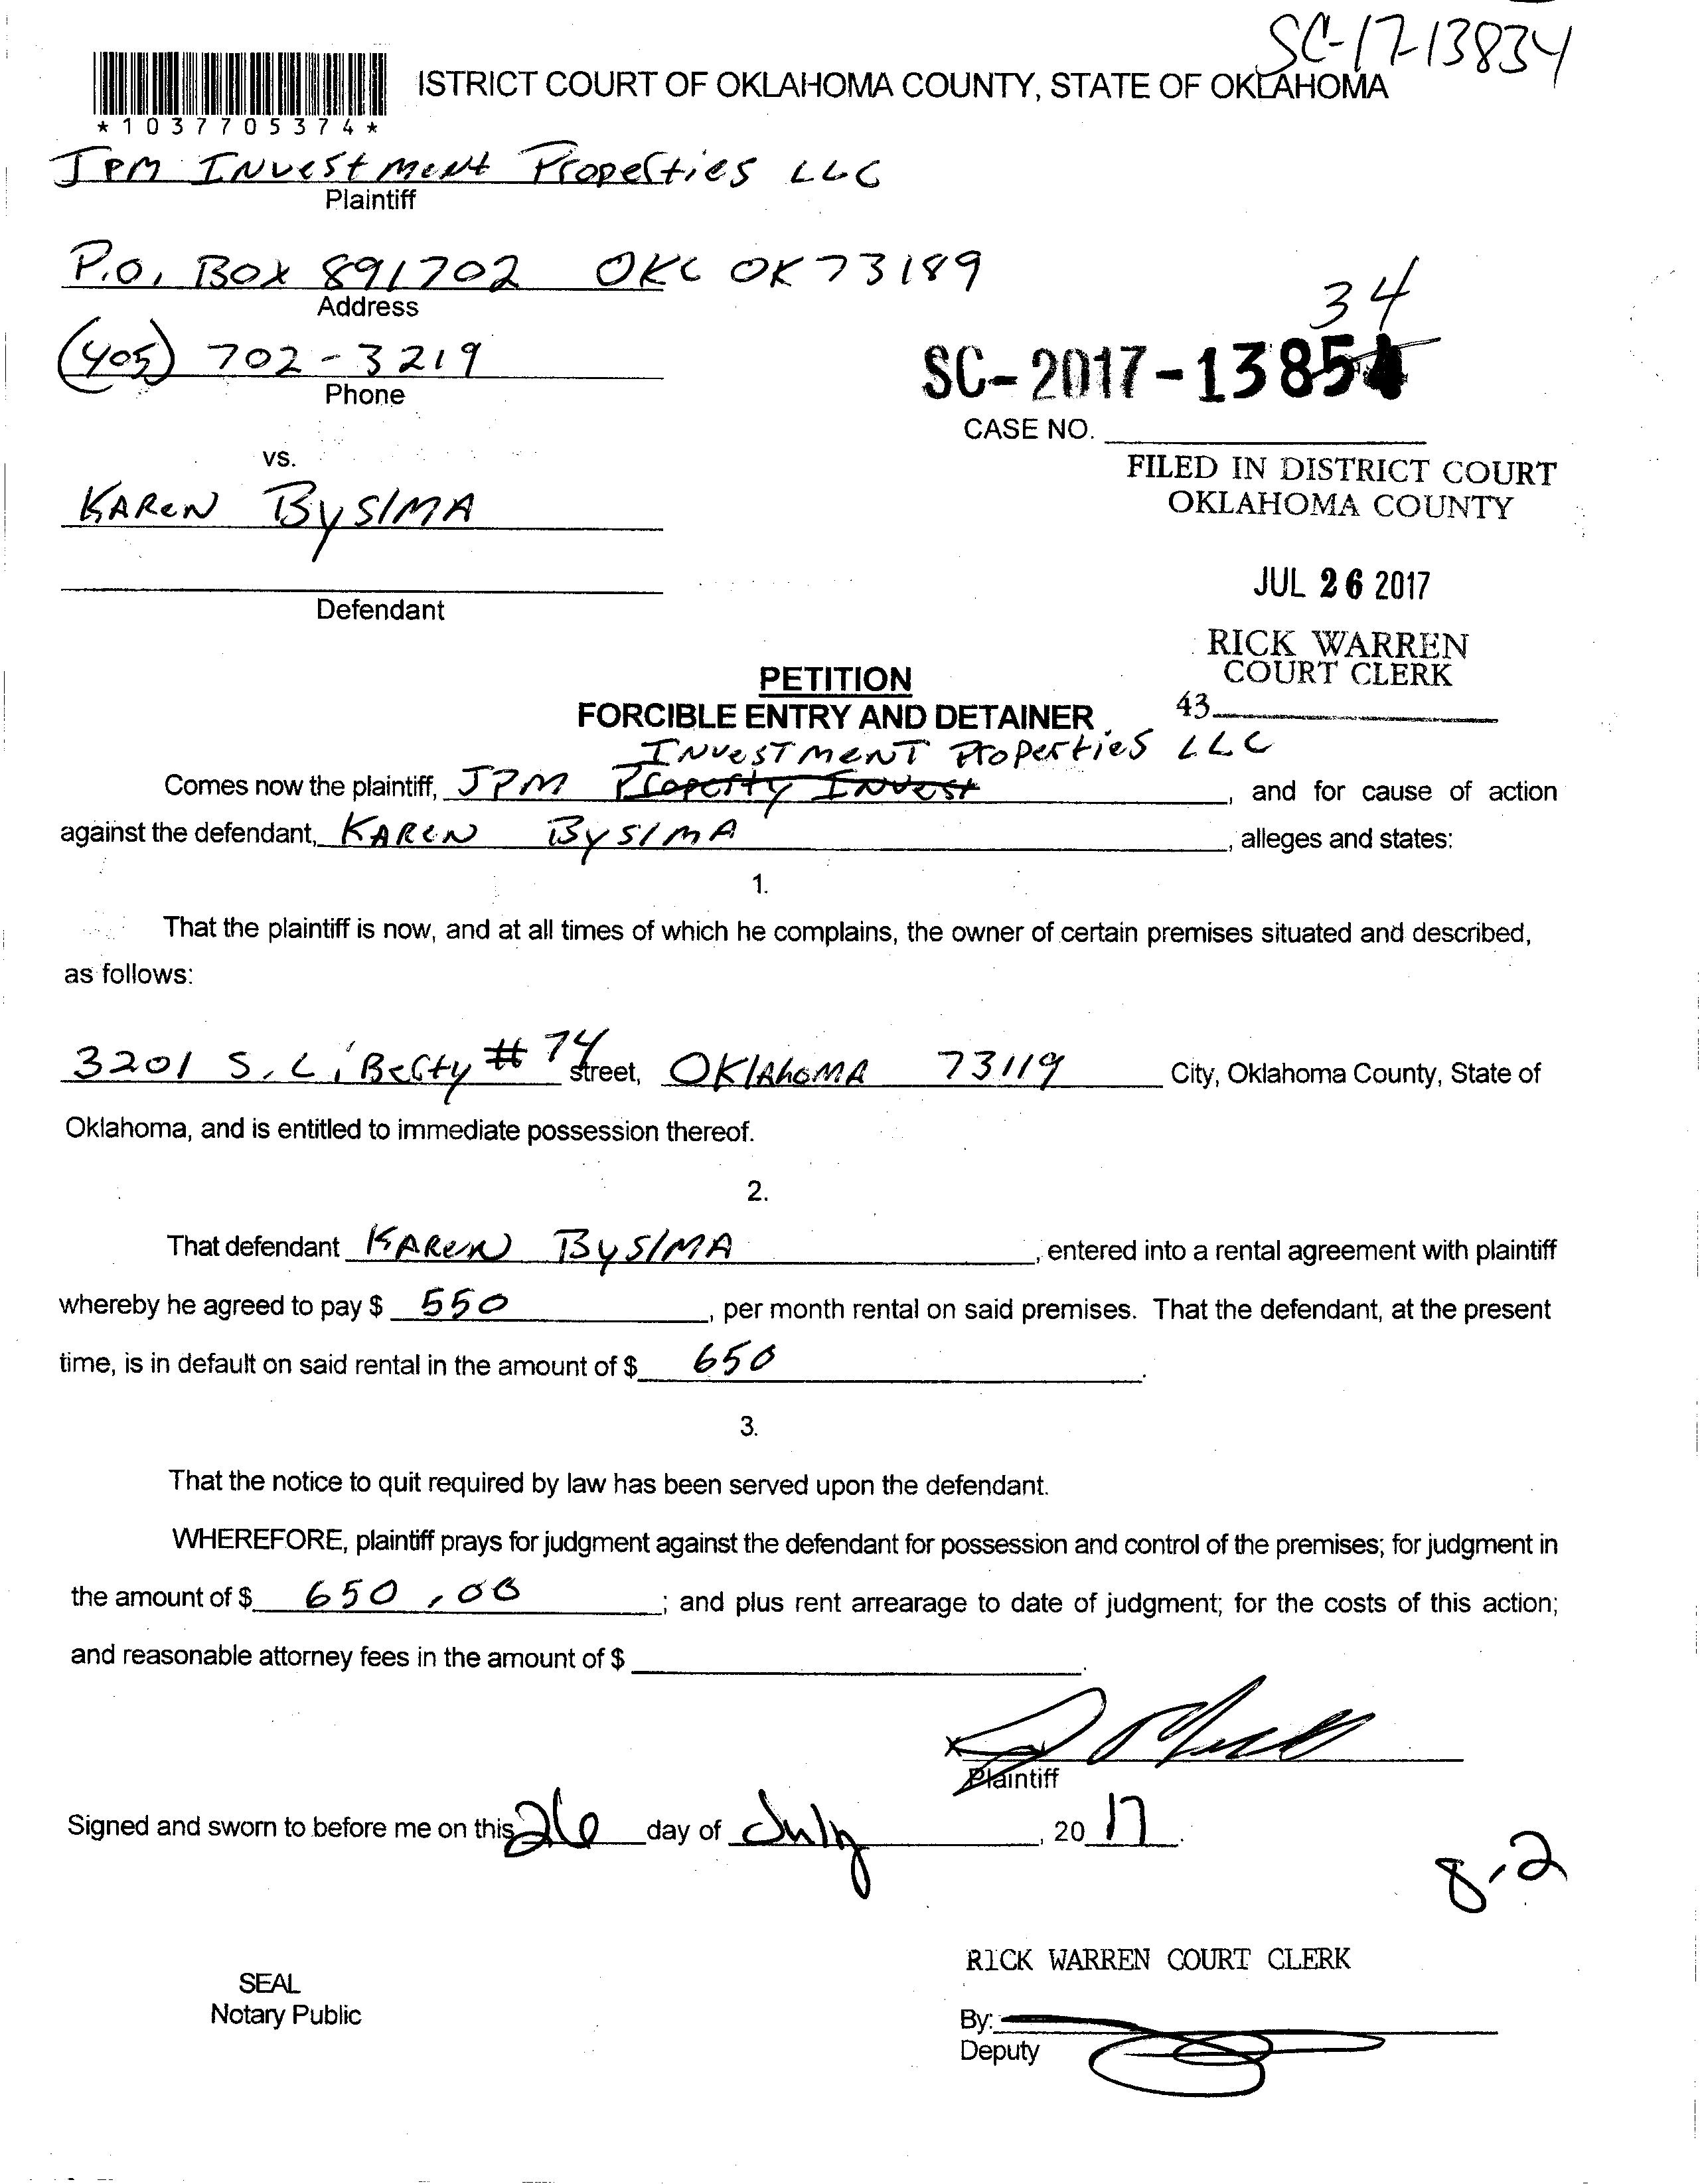 SC-17-13834
ISTRICT COURT OF OKLAHOMA COUNTY, STATE OF OKLAHOMA
*1037705374*
JPM Investment Properties LLC
Plaintiff
P.O. Box 891702 OKC OK 73189
Address
34
(405) 702-3219
Phone
SC-2017-13854
CASE NO.
vs.
FILED IN DISTRICT COURT
OKLAHOMA COUNTY
KAREN BYSIMA
JUL 26 2017
Defendant
RICK WARREN
COURT CLERK
43
PETITION
FORCIBLE ENTRY AND DETAINER
Investment Properties LLC
Comes now the plaintiff, JPM Property Invest, and for cause of action
against the defendant, KAREN BYSIMA, alleges and states:
1.
That the plaintiff is now, and at all times of which he complains, the owner of certain premises situated and described,
as follows:
3201 S. Liberty # 74 street, OKlAhoMA 73119 City, Oklahoma County, State of
Oklahoma, and is entitled to immediate possession thereof.
2.
That defendant KAREN BYSIMA, entered into a rental agreement with plaintiff
whereby he agreed to pay $ 550, per month rental on said premises. That the defendant, at the present
time, is in default on said rental in the amount of $ 650.
3.
That the notice to quit required by law has been served upon the defendant.
WHEREFORE, plaintiff prays for judgment against the defendant for possession and control of the premises; for judgment in
the amount of $ 650.00; and plus rent arrearage to date of judgment; for the costs of this action;
and reasonable attorney fees in the amount of $ .
x
Plaintiff
Signed and sworn to before me on this 26 day of July, 20 17.
8.2
RICK WARREN COURT CLERK
SEAL
Notary Public
By:
Deputy